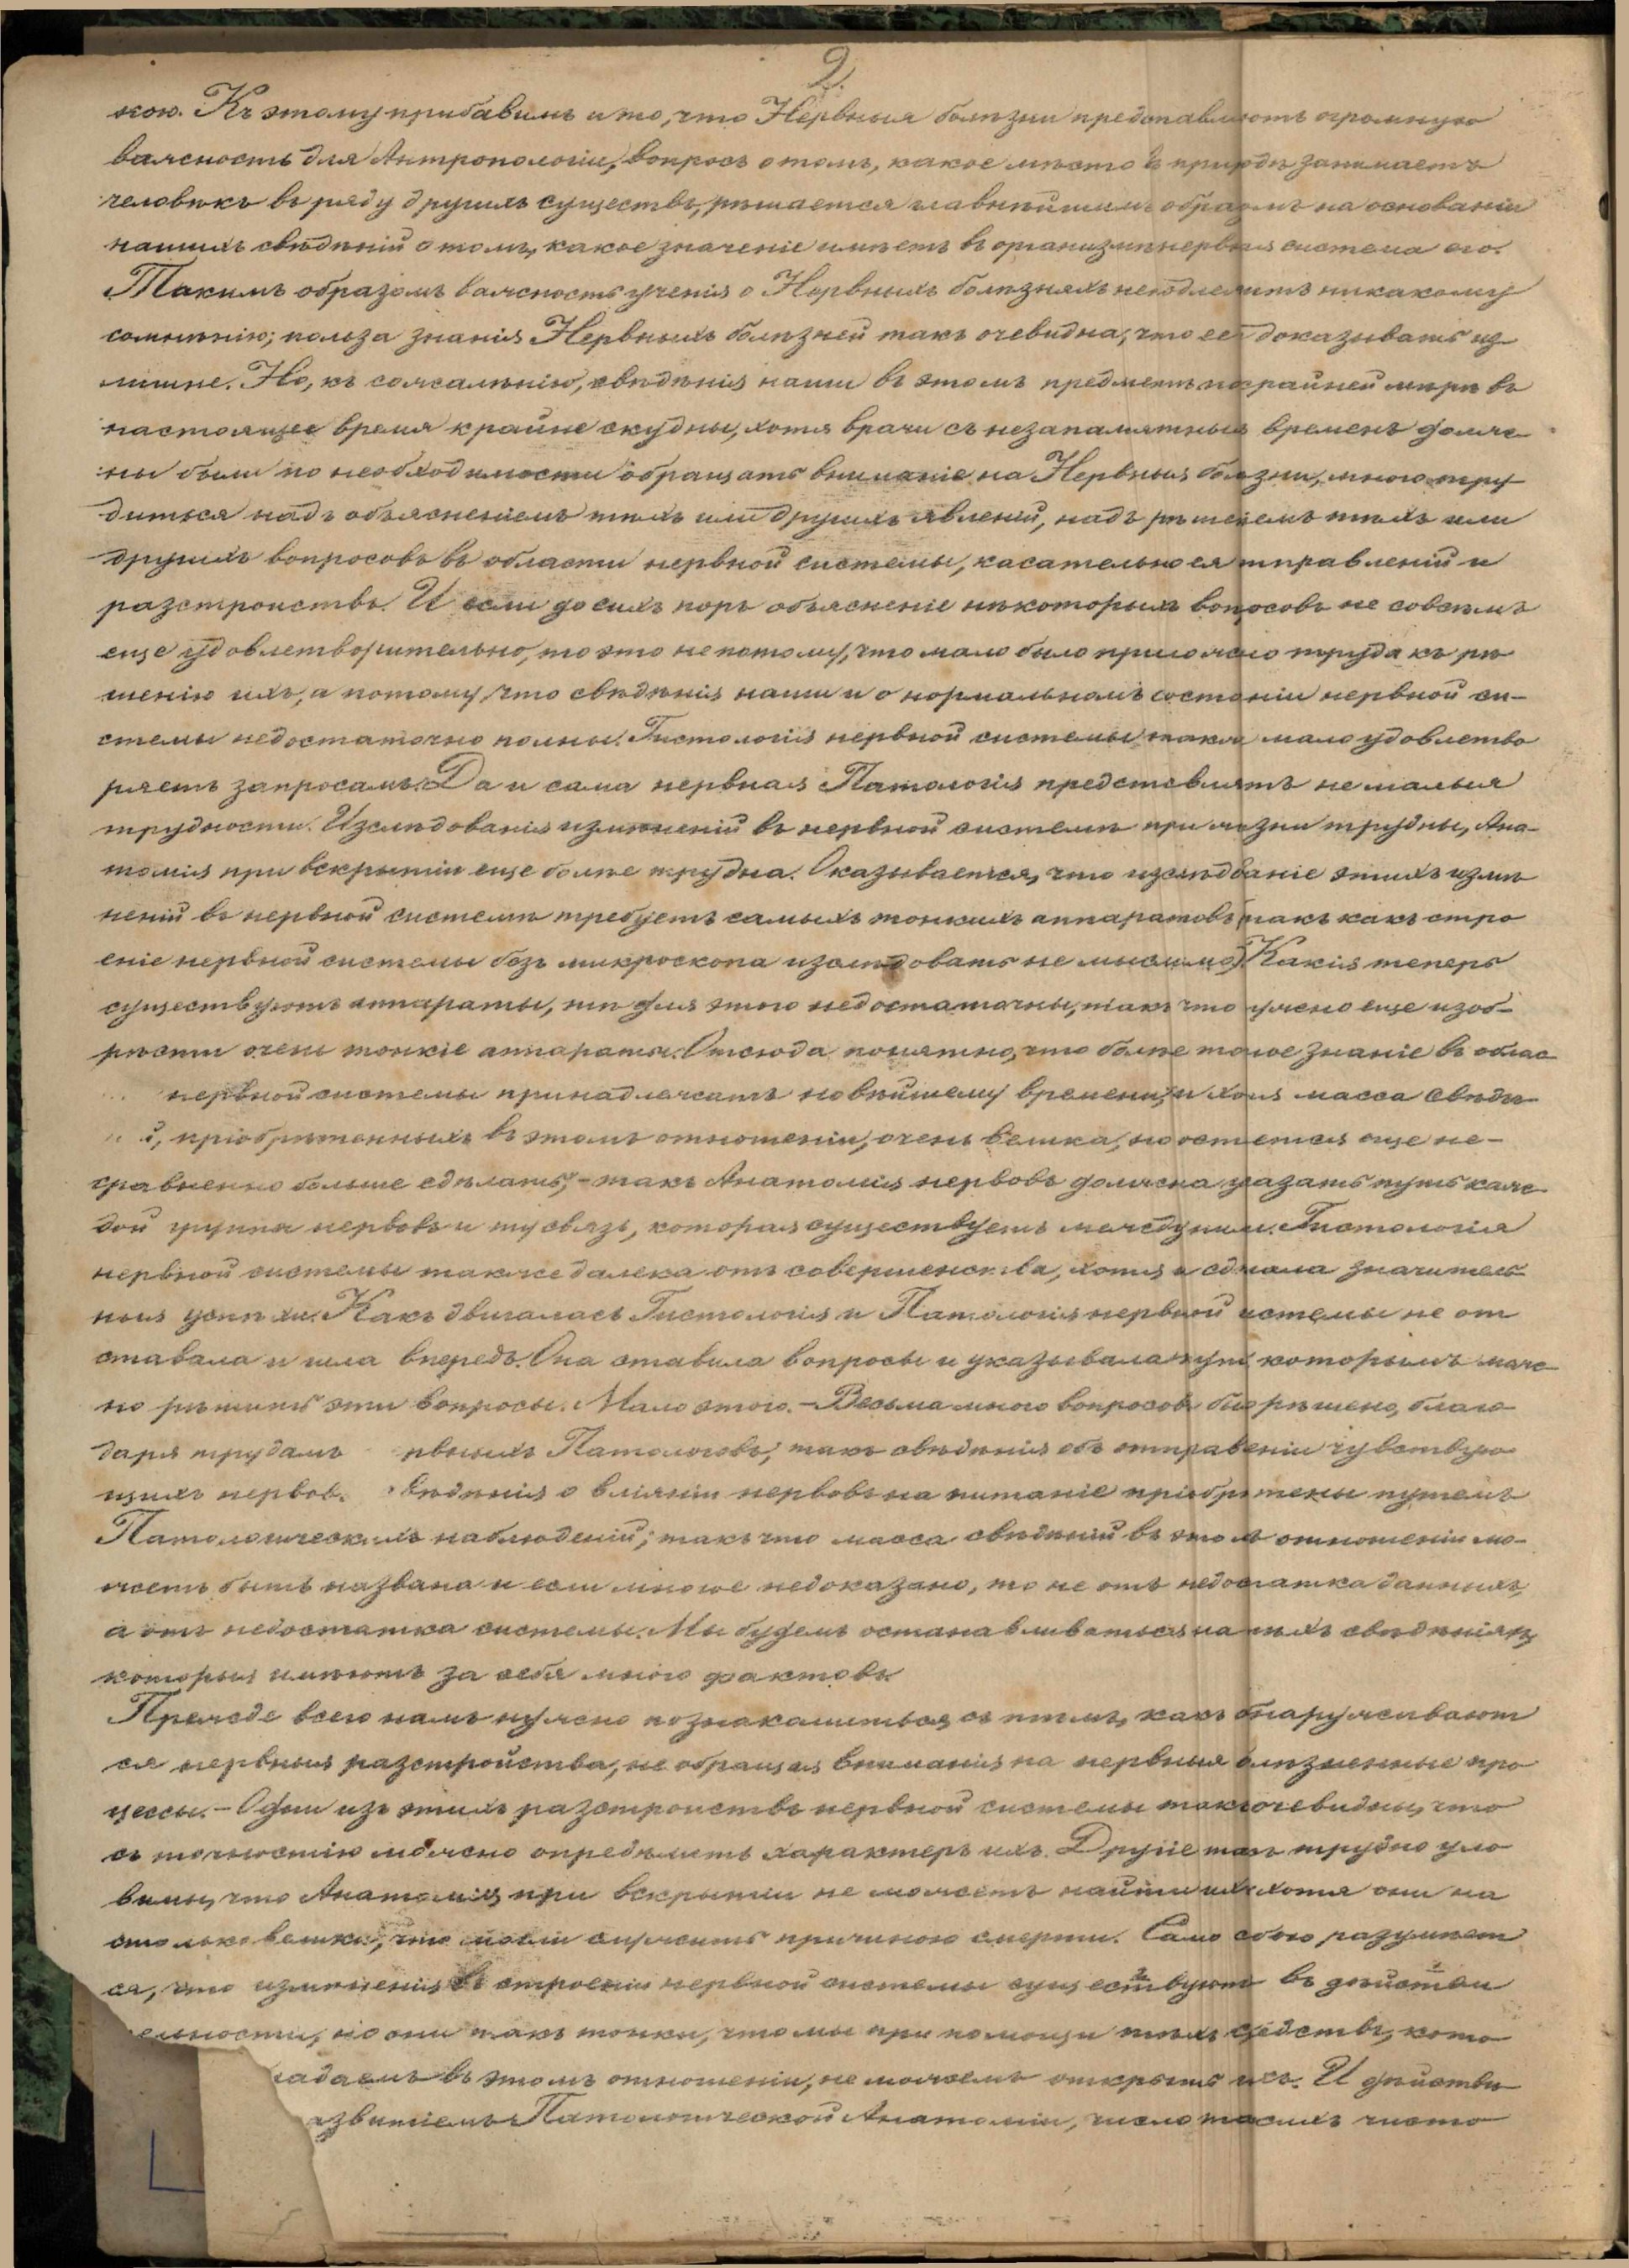 2.
кою. Къ этому прибавимъ и то, что Нервныя болѣзни представляютъ огромную
важность для Антропологіи, вопросъ о томъ, какое мѣсто въ природѣ занимаетъ
человѣкъ въ ряду другихъ существъ, рѣшается главнѣйшимъ образомъ на основаніи
нашихъ свѣдѣній о томъ, какое значеніе имѣетъ въ организмѣ нервная система его.
Такимъ образомъ важность ученія о Нервныхъ болѣзняхъ неподлежитъ никакому
сомнѣнію; польза знанія Нервныхъ болѣзней такъ очевидна, что ее доказывать из-
лишне. Но, къ сожалѣнію, свѣдѣнія наши въ этомъ предметѣ по крайней мѣрѣ въ
настоящее время крайне скудны, хотя врачи съ незапамятныхъ временъ долж-
ны были по необходимости обращать вниманіе на Нервныя болѣзни, много тру-
диться надъ объясненіемъ тѣхъ или другихъ явленій, надъ рѣшеніемъ тѣхъ или
другихъ вопросовъ въ области нервной системы, касательно ея отправленій и
разстройствъ. И если до сихъ поръ объясненіе нѣкоторыхъ вопросовъ не совсѣмъ
еще удовлетворительно, то это не потому, что мало было приложено труда къ рѣ
шенію ихъ, а потому, что свѣдѣнія наши и о нормальномъ состояніи нервной си-
стемы недостаточно полны. Гистологія нервной системы также мало удовлетво
ряетъ запросамъ. Да и сама нервная Патологія представляетъ не малыя
трудности. Изслѣдованія измѣненій въ нервной системѣ при жизни трудны, Ана-
томія при вскрытіи еще болѣе трудна. Оказывается, что изслѣдованіе этихъ измѣ
неній въ нервной системѣ требуетъ самыхъ тонкихъ аппаратовъ (такъ какъ стро
еніе нервной системы безъ микроскопа изслѣдовать не мыслимо). Какіе теперь
существуютъ аппараты, тѣ для этого недостаточны, такъ что нужно еще изоб-
рѣсти очень тонкіе аппараты. Отсюда понятно, что болѣе точное знаніе въ облас
нервной системы принадлежитъ новѣйшему времени, и хотя масса свѣдѣ-
й, пріобрѣтенныхъ въ этомъ отношеніи, очень велика, но остается еще не-
сравненно больше сдѣлать, – такъ Анатомія нервовъ должна указать путь каж
дой группы нервовъ и ту связь, которая существуетъ между ними. Гистологія
нервной системы также далека отъ совершенства, хотя и сдѣлала значитель
ныя успѣхи. Какъ двигалась Гистологія и Патологія нервной системы не от
ставала и шла впередъ. Она ставила вопросы и указывала путь которымъ мож-
но рѣшить эти вопросы. Мало этого. – Весьма много вопросовъ было рѣшено, благо
даря трудамъ рвныхъ Патологовъ; такъ свѣдѣнія объ отправленіи чувствую
щихъ нервов. вѣдѣнія о вліяніи нервовъ на питаніе пріобрѣтены путемъ
Патологическихъ наблюденій; такъ что масса свѣдѣній въ этомъ отношеніи мо-
жетъ быть названа и если многое недоказано, то не отъ недостатка данныхъ,
а отъ недостатка системы. Мы будемъ останавливаться на тѣхъ свѣдѣніяхъ,
которыя имѣютъ за себя много фактовъ.
Прежде всего намъ нужно познакомиться съ тѣмъ, какъ обнаруживают
ся нервныя разстройства, не обращая вниманія на нервныя болѣзненные про
цессы. – Одни изъ этихъ разстройствъ нервной системы такъ очевидны, что
съ точностію можно опредѣлить характеръ ихъ. Другіе такъ трудно уло
вимы, что Анатомія при вскрытіи не можетъ найти ихъ хотя они на
столько велики, что могли служить причиною смерти. Само собою разумѣет
ся, что измѣненія въ строеніи нервной системы существуютъ въ дѣйстви
ельности, но они такъ тонки, что мы при помощи тѣхъ средствъ, кото
ладаемъ въ этомъ отношеніи, не можемъ открыть ихъ. И дѣйстви
азвитіемъ Патологической Анатоміи, число такихъ чисто